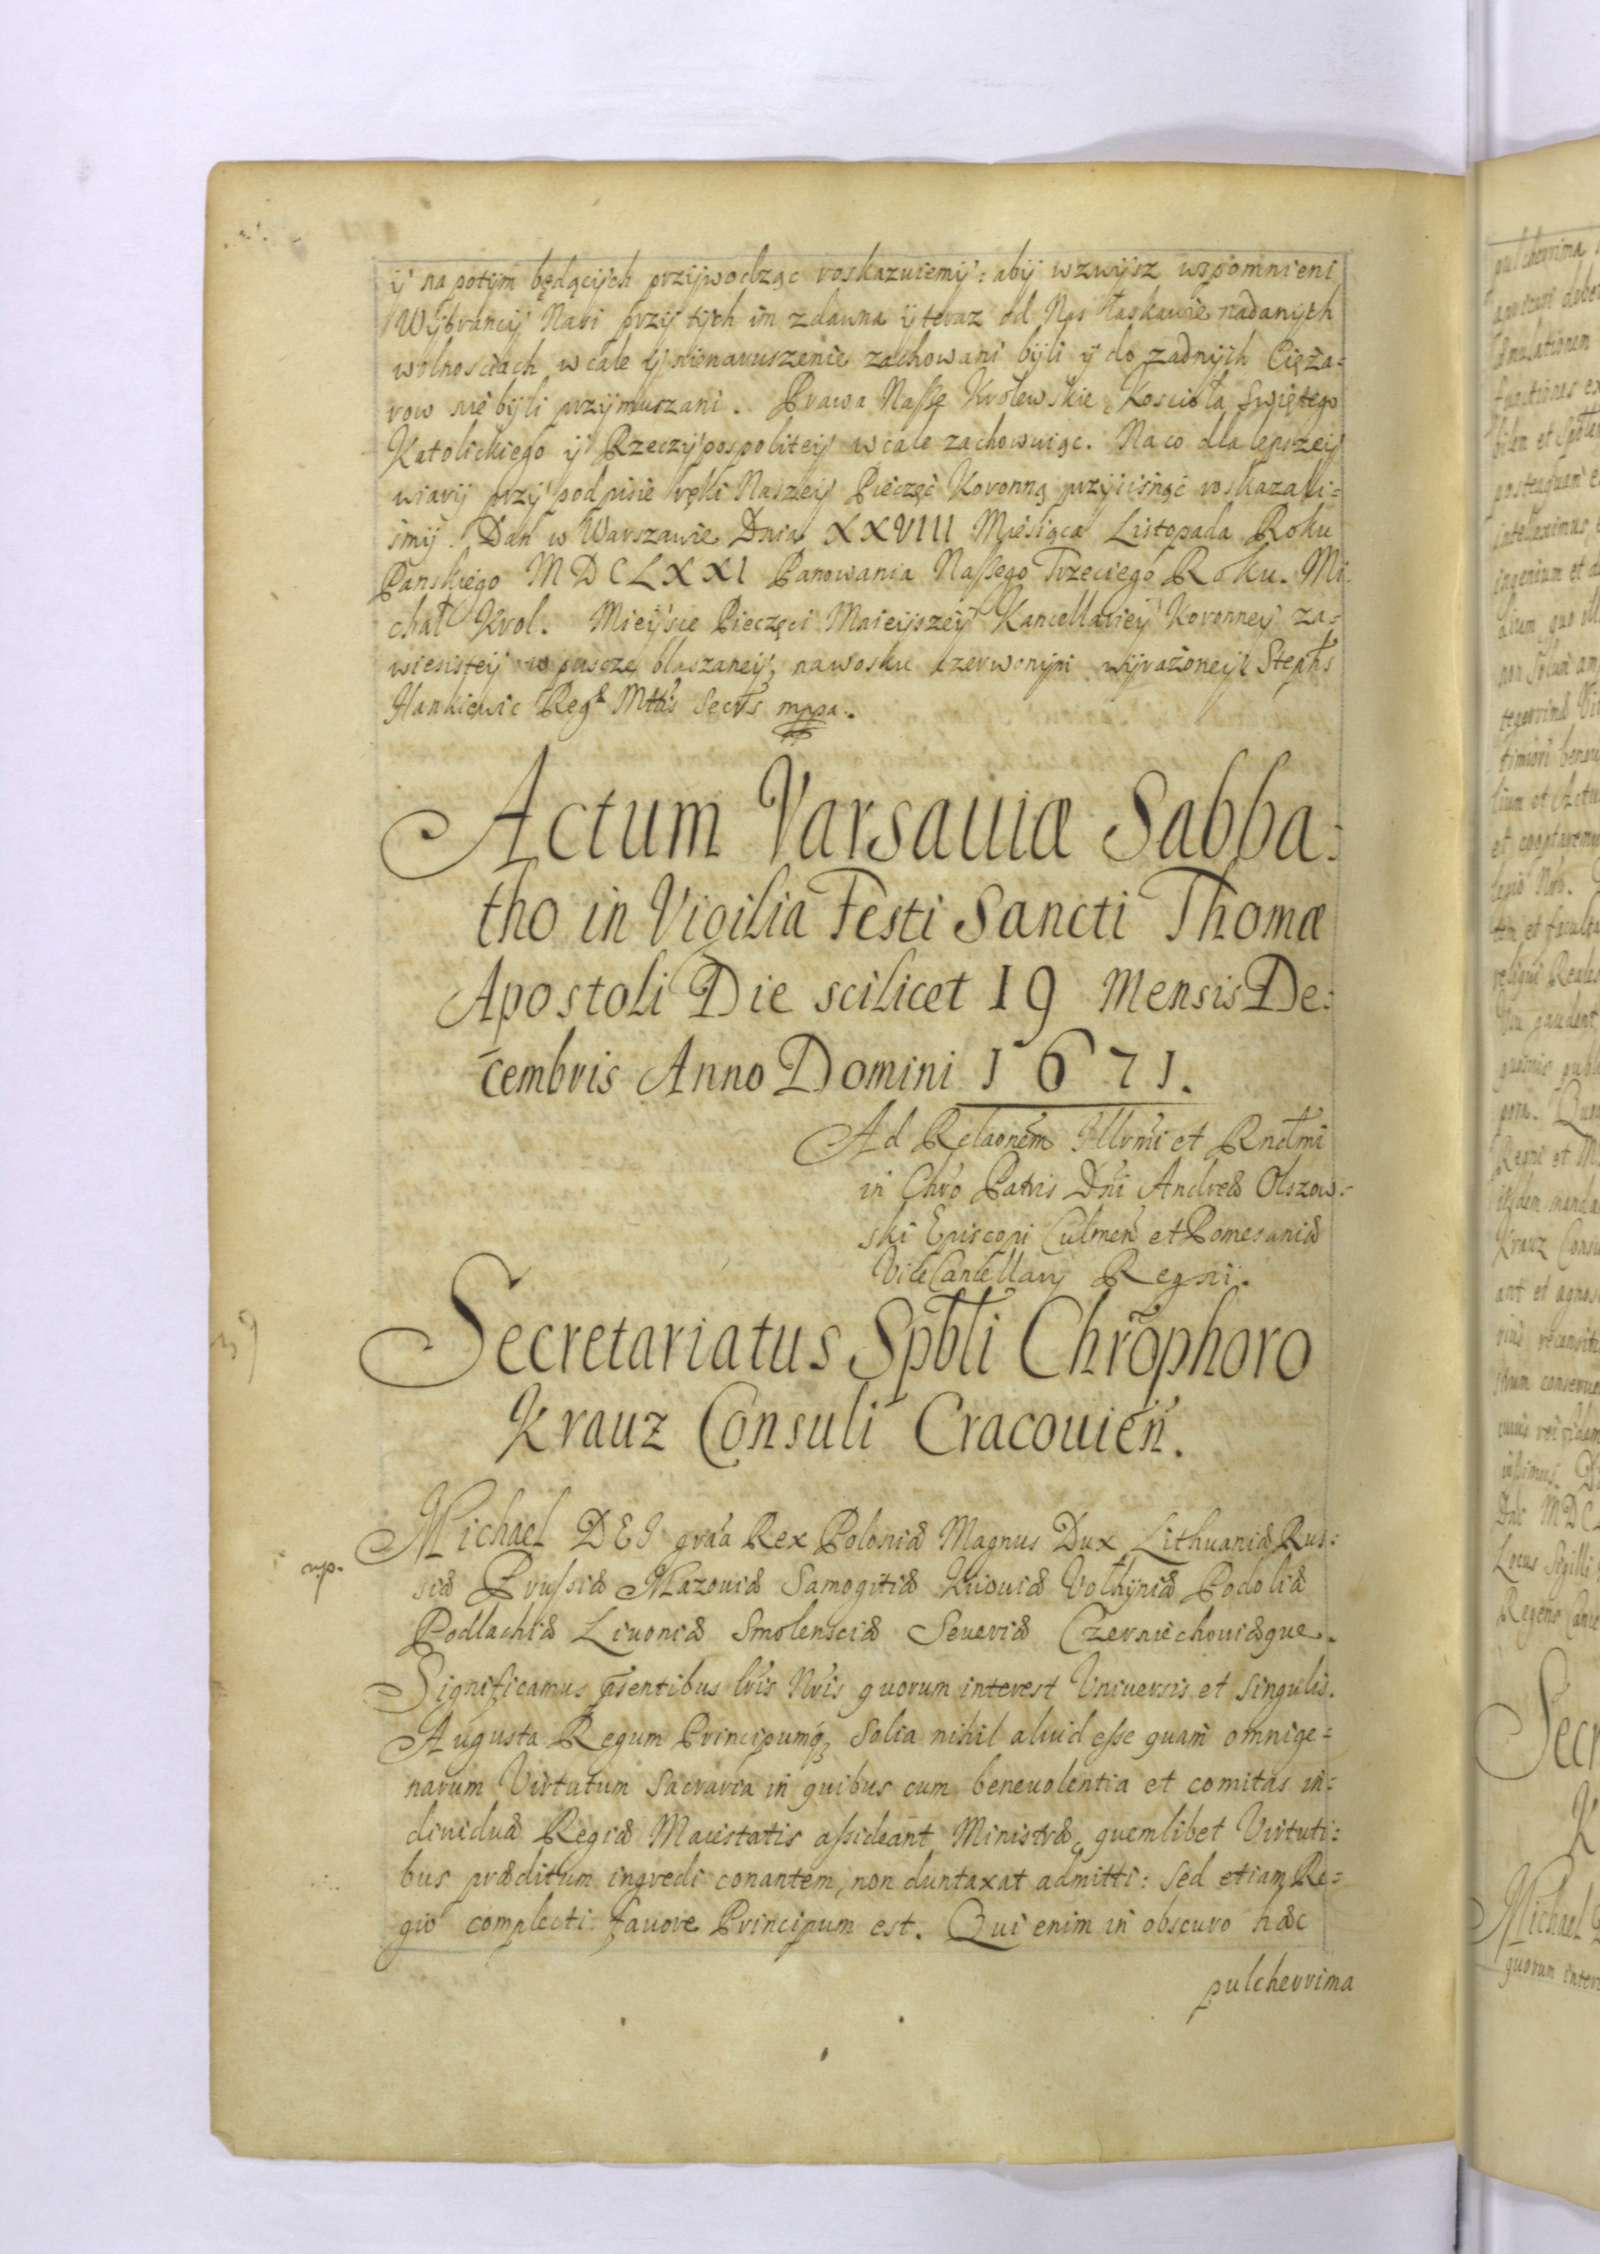 ÿ na potÿm będącÿch przÿwodząc roskazuiemÿ: abÿ wzwÿsz wspomnieni
Wÿbrancÿ Nasi przÿ tÿch im zdawna ÿ teraz od Nas łaskawie nadanÿch
wolnosciach wcale ÿ nienaruszenie zachowani bÿli ÿ do zadnÿch Cięża=
row nie bÿli przÿmuszani. Prawa Nasze Krolewskie, Koscioła Swiętego
Katolickiego ÿ Rzeczÿpospoliteÿ wcale zachowuiąc. Na co dla lepszeÿ
wiarÿ przÿ podpisie ręki Naszeÿ Pieczęć Koronną przÿcisnąć roskazali=
smÿ. Dan w Warszawie Dnia XXVIII Miesiąca Listopada Roku
Panskiego MDCLXXI Panowania Naszego Trzeciego Roku. Mi
chał Krol. Mieÿsce Pieczęci Mnieÿszeÿ Kancellarieÿ Koronneÿ za=
wiesisteÿ w puszce blaszaneÿ, na wosku czerwonÿm wÿrażoneÿ Stephs
Hankiewic Regs Mttis Secrs mppa.
Actum Varsauiæ Sabba=
tho in Vigilia Festi Sancti Thomæ
Apostoli Die scilicet 19 Mensis De=
cembris Anno Domini 1671.
Ad Relaonem Illrmi et Rndmi
in Chro Patris Dni Andreæ Olszow=
ski Episcopi Culmen et Pomesaniæ
ViceCancellarÿ Regni.
39
Secretariatus Spbli Chrophoro
Krauz Consuli Cracouien.
Michael DEI gra'a Rex Poloniæ Magnus Dux Lithuaniæ Rus=
np.
siæ Prussiæ Mazouiæ Samogitiæ Kiiouiæ Volhÿniæ Podoliæ
Podlachiæ Liuoniæ Smolensciæ Seueriæ Czerniechouiæque.
Significamus pntibus lris Nris quorum interest Uniuersis et Singulis.
Augusta Regum Principumq, Solia nihil aliud esse quam omnige=
narum Virtutum Sacraria in quibus cum beneuolentia et comitas in=
diuiduæ Regiæ Maiestatis assideant Ministræ, quemlibet Virtuti=
bus præditum ingredi conantem, non duntaxat admitti: Sed etiam Re=
gio complecti fauore Principum est. Qui enim in obscuro hæc
pulcherrima